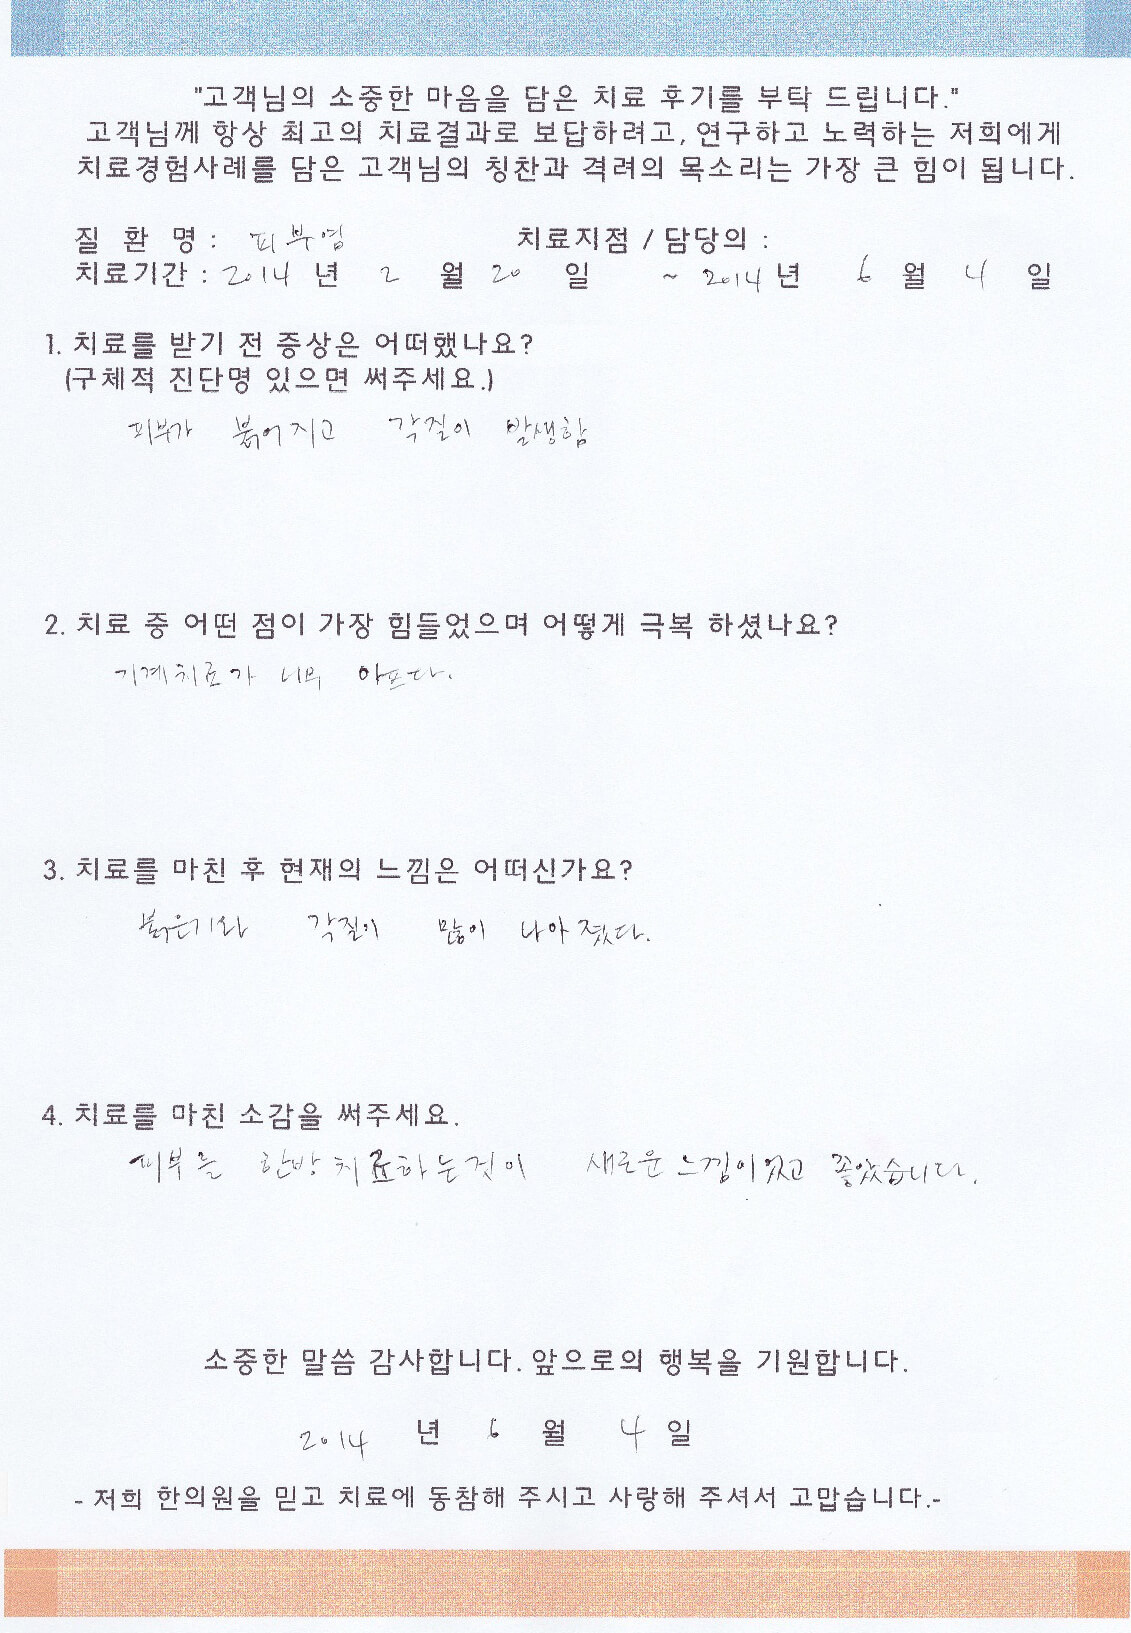 "고객님의 소중한 마음을 담은 치료 후기를 부탁 드립니다."
고객님께 항상 최고의 치료결과로 보답하려고, 연구하고 노력하는 저희에게
치료경험사례를 담은 고객님의 칭찬과 격려의 목소리는 가장 큰 힘이 됩니다.
질 환 명 : 피부염 치료지점 / 담당의 :
치료기간 : 2014 년 2 월 20 일 ~ 2014 년 6 월 4 일
1. 치료를 받기 전 증상은 어떠했나요?
(구체적 진단명 있으면 써주세요.)
피부가 붉어지고 각질이 발생함
2. 치료 중 어떤 점이 가장 힘들었으며 어떻게 극복 하셨나요?
기계치료가 너무 아프다.
3. 치료를 마친 후 현재의 느낌은 어떠신가요?
붉은기와 각질이 많이 나아졌다.
4. 치료를 마친 소감을 써주세요.
피부를 한방치료하는것이 새로운 느낌이었고 좋았습니다.
소중한 말씀 감사합니다. 앞으로의 행복을 기원합니다.
2014 년 6 월 4 일
- 저희 한의원을 믿고 치료에 동참해 주시고 사랑해 주셔서 고맙습니다.-